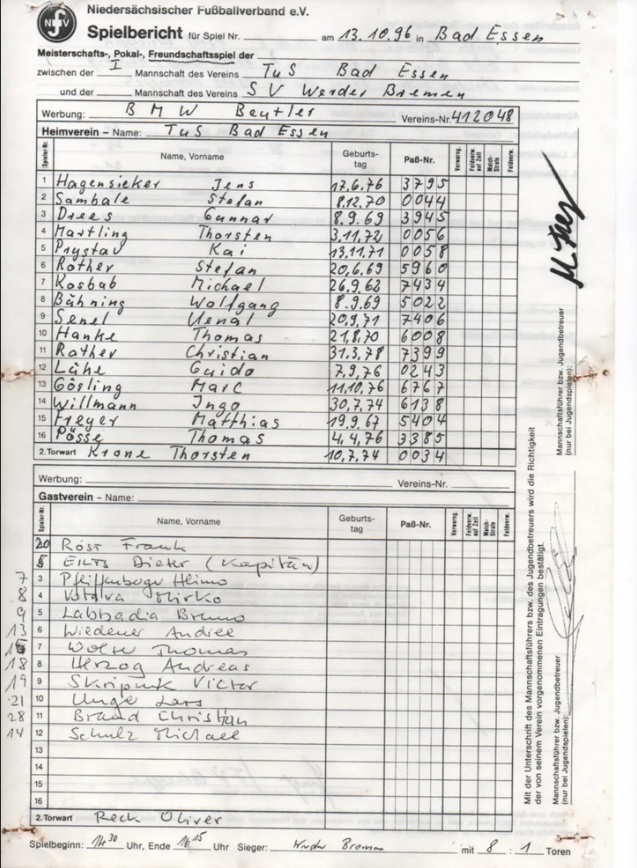 Niedersächsischer Fußballverband e.V.
NFV
Spielbericht für Spiel Nr. am 13.10.96 in Bad Essen
Meisterschafts-, Pokal-, Freundschaftsspiel der
zwischen der I Mannschaft des Vereins TuS Bad Essen
und der Mannschaft des Vereins SV Werder Bremen
Werbung: BMW Beutler Vereins-Nr. 412048
Heimverein – Name: TuS Bad Essen
Spieler-Nr. Name, Vorname Geburtstag Paß-Nr. Verwarng. Feldverw. auf Zeit Match-Strafe Feldverw.
1 Hagensieker Jens 17.6.76 3795
2 Sambale Stefan 8.12.70 0044
3 Drees Gunnar 8.9.69 3945
4 Hartling Thorsten 3.11.72 0056
5 Prystav Kai 13.11.71 0058
6 Rother Stefan 20.6.69 5960
7 Kosbab Michael 26.9.68 7434
8 Bähning Wolfgang 8.9.69 5022
9 Senel Uenal 20.9.71 7406
10 Hanke Thomas 21.8.70 6008
11 Rother Christian 31.3.78 7399
12 Lühe Guido 7.9.76 0243
13 Gösling Marc 11.10.76 6767
14 Willmann Ingo 30.7.74 6138
15 Heyer Matthias 19.9.67 5404
16 Pösse Thomas 4.4.76 3385
2. Torwart Krone Thorsten 10.7.74 0034
Werbung: Vereins-Nr.
Gastverein – Name:
Spieler-Nr. Name, Vorname Geburtstag Paß-Nr. Verwarng. Feldverw. auf Zeit Match-Strafe Feldverw.
20 Rost Frank
5 Eilts Dieter (Kapitän)
7 3 Pfeifenberger Heimo
8 4 Votava Mirko
9 5 Labbadia Bruno
13 6 Wiedener Andree
16 7 Wolter Thomas
18 8 Herzog Andreas
19 9 Skripnik Victor
21 10 Unger Lars
28 11 Brand Christian
14 12 Schulz Michael
13
14
15
16
2. Torwart Reck Oliver
Spielbeginn: 14 30 Uhr, Ende 16 15 Uhr Sieger: Werder Bremen mit 8 : 1 Toren
Mannschaftsführer bzw. Jugendbetreuer
(nur bei Jugendspielen):
Mit der Unterschrift des Mannschaftsführers bzw. des Jugendbetreuers wird die Richtigkeit
der von seinem Verein vorgenommenen Eintragungen bestätigt.
Mannschaftsführer bzw. Jugendbetreuer
(nur bei Jugendspielen):